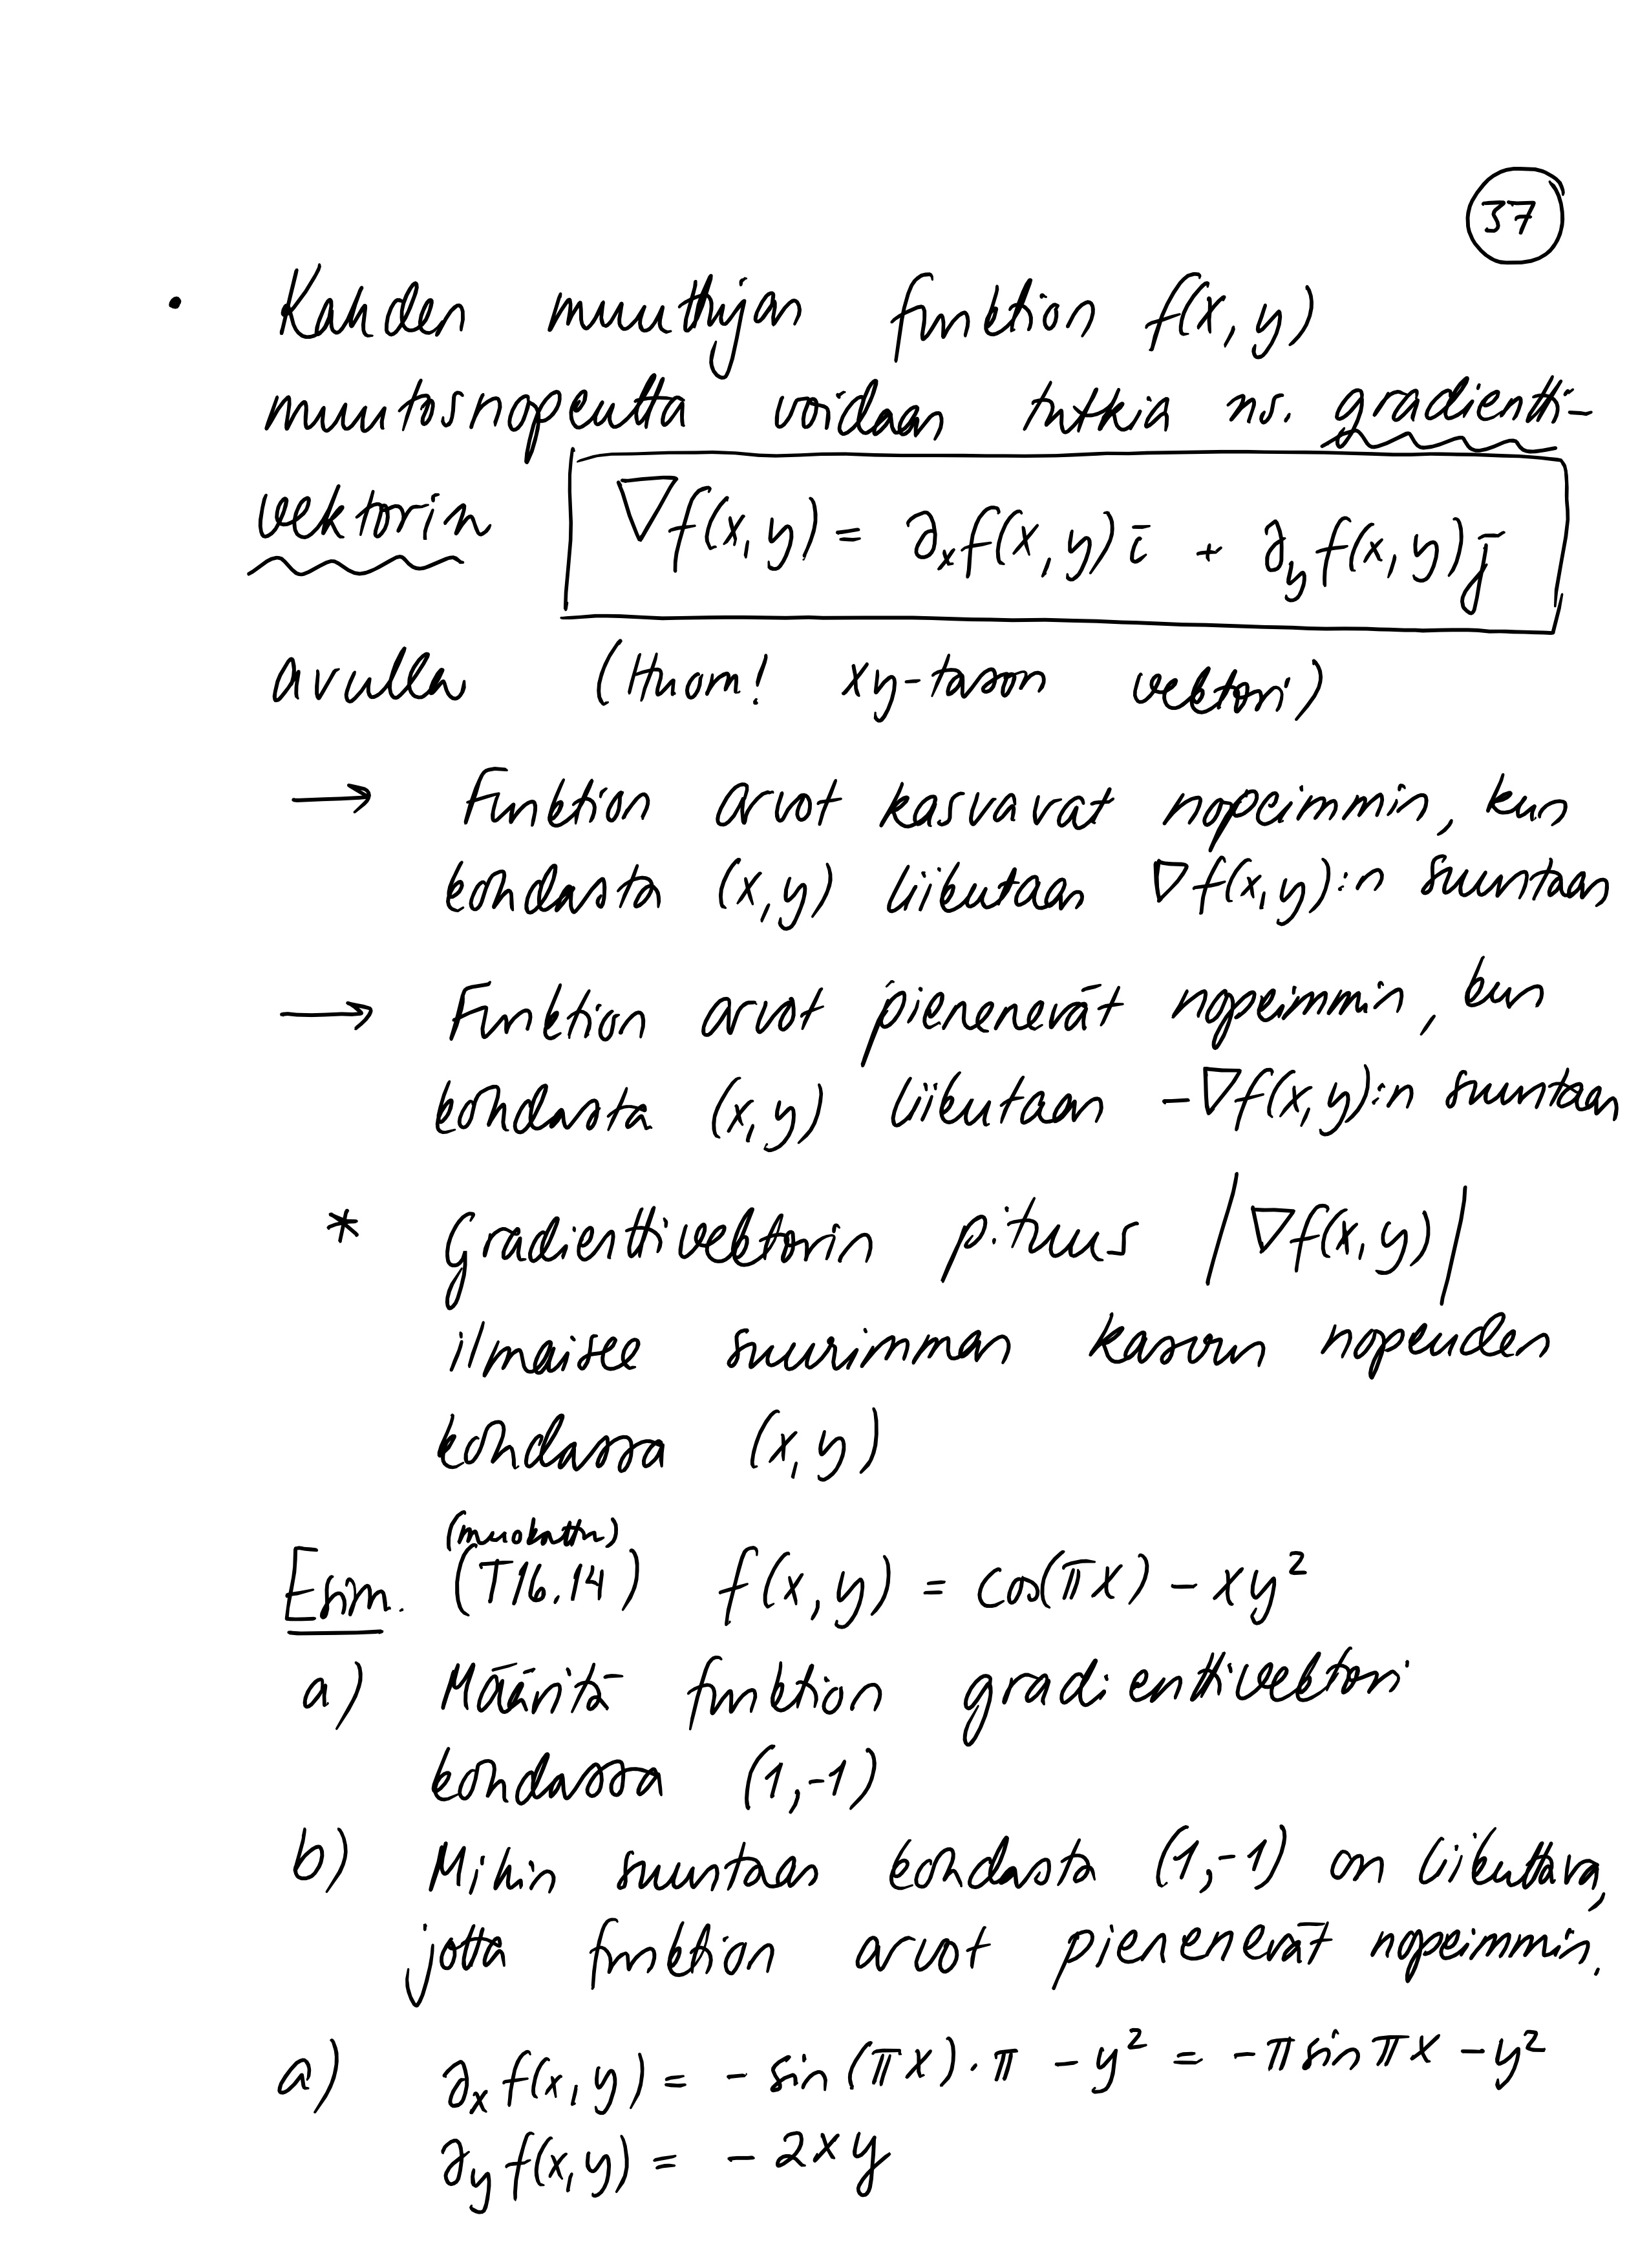 37
• Kahden muuttujan funktion f(x,y)
muutosnopeutta voidaan tutkia ns. gradientti-
vektorin ∇f(x,y) = ∂ₓf(x,y) i̅ + ∂ᵧf(x,y) j̅
avulla (Huom! xy-tason vektori)
→ Funktion arvot kasvavat nopeimmin, kun
kohdasta (x,y) liikutaan ∇f(x,y):n suuntaan
→ Funktion arvot pienenevät nopeimmin, kun
kohdasta (x,y) liikutaan -∇f(x,y):n suuntaan
* Gradienttivektorin pituus |∇f(x,y)|
ilmaisee suurimman kasvun nopeuden
kohdassa (x,y)
(muokattu)
Esim. (T16.14) f(x,y) = cos(πx) - xy²
a) Määritä funktion gradienttivektori
kohdassa (1,-1)
b) Mihin suuntaan kohdasta (1,-1) on liikuttava,
jotta funktion arvot pienenevät nopeimmin.
a) ∂ₓf(x,y) = - sin(πx)·π - y² = -π sin πx - y²
∂ᵧf(x,y) = - 2xy